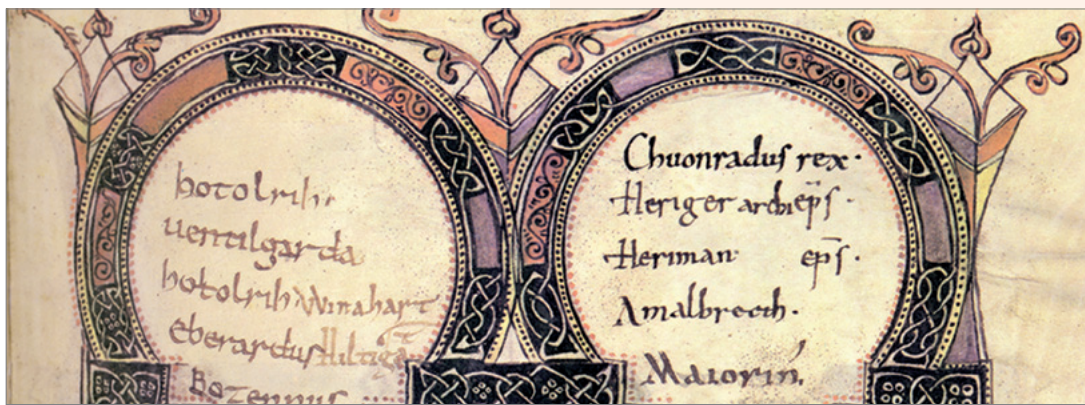 hotolrih
uentilgarda
hotolrih Winahart
eberardus Hiltiga
Chuonradus rex ·
Heriger archiep̄s ·
Heriman ep̄s ·
Amalbrech ·
Maiorin